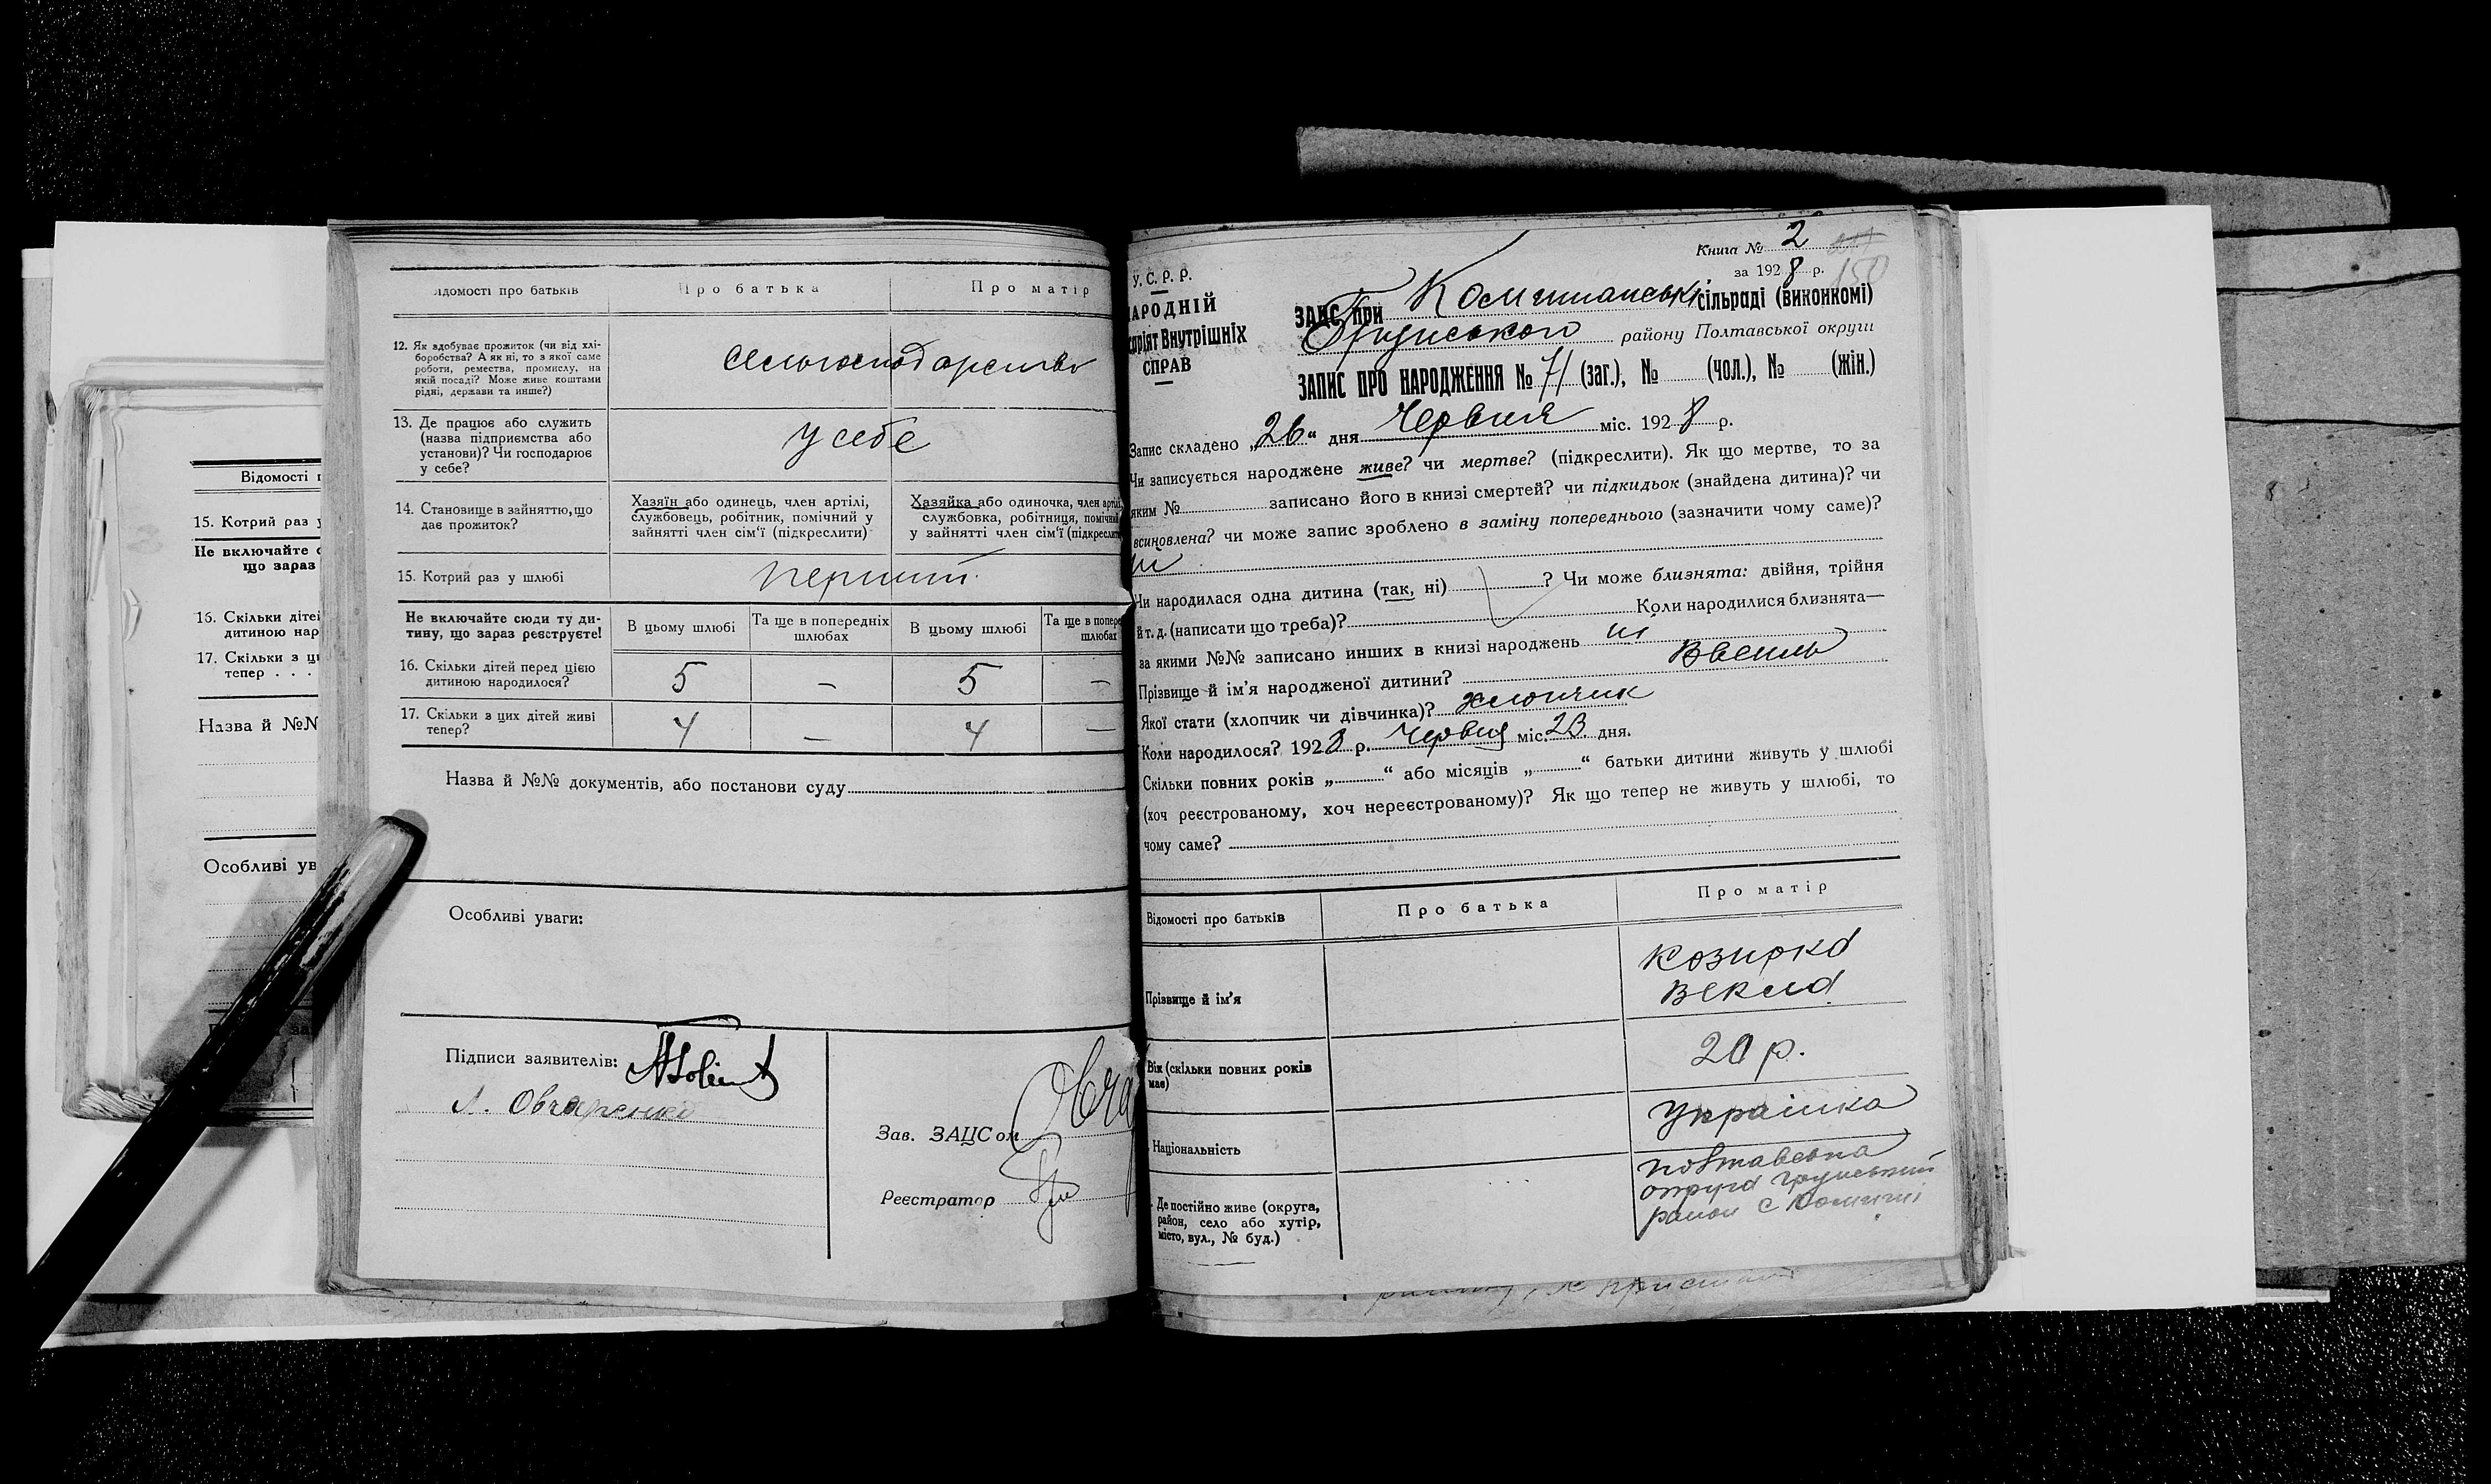 Відомості
15. Котрий раз
Не включайте
що зараз
16. Скільки дітей
дитиною нар
17. Скільки з
тепер . . .
Назва й №№
Особливі ув
ідомості про батьків
Про батька
Про матір
12. Як здобуває прожиток (чи від хлі-
боробства? А як ні, то з якої саме
роботи, ремества, промислу, на
якій посаді? Може живе коштами
рідні, держави та инше?)
сельхосподарство
13. Де працює або служить
(назва підприємства або
установи)? Чи господарює
у себе?
у себе
14. Становище в зайняттю, що
дає прожиток?
Хазяїн або одинець, член артілі,
службовець, робітник, помічний у
зайнятті член сім'ї (підкреслити)
Хазяйка або одиночка, член артілі,
службовка, робітниця, помічний
у зайнятті член сім'ї (підкреслит
15. Котрий раз у шлюбі
перший
Не включайте сюди ту ди-
тину, що зараз реєструєте!
В цьому шлюбі
Та ще в попередніх
шлюбах
В цьому шлюбі
Та ще в попере
шлюбах
16. Скільки дітей перед цією
дитиною народилося?
5 – 5 –
17. Скільки з цих дітей живі
тепер?
4 – 4 –
Назва й №№ документів, або постанови суду
Особливі уваги:
Підписи заявителів:
Л. Овчаренко
Зав. ЗАЦСом
Реєстратор
Книга № 2
за 1928 р.
150
У.С.Р.Р.
АРОДНІЙ
аріят Внутрішніх
СПРАВ
ЗАЦС при Комишанські сільраді (виконкомі)
Грунського району Полтавської округи
ЗАПИС ПРО НАРОДЖЕННЯ № 71 (заг.), № (чол.), № (жін.)
Запис складено „26“ дня Червня міс. 1928 р.
Чи записується народжене живе? чи мертве? (підкреслити). Як що мертве, то за
яким № записано його в книзі смертей? чи підкидьок (знайдена дитина)? чи
всиновлена? чи може запис зроблено в заміну попереднього (зазначити чому саме)?
ні
Чи народилася одна дитина (так, ні) ? Чи може близнята: двійня, трійня
й т. д. (написати що треба)? Коли народилися близнята—
за якими №№ записано инших в книзі народжень ні
Прізвище й ім'я народженої дитини?
Якої стати (хлопчик чи дівчинка)? хлопчик
Коли народилося? 1928 р. Червня міс. 23 дня.
Скільки повних років „ “ або місяців „ “ батьки дитини живуть у шлюбі
(хоч реєстрованому, хоч нереєстрованому)? Як що тепер не живуть у шлюбі, то
чому саме?
Відомості про батьків
Про батька
Про матір
Прізвище й ім'я
Козирка
Векла
Вік (скільки повних років
має)
20 р.
Національність
Українка
Де постійно живе (округа,
район, село або хутір,
місто, вул., № буд.)
Полтавська
округа Грунський
район с Комиші